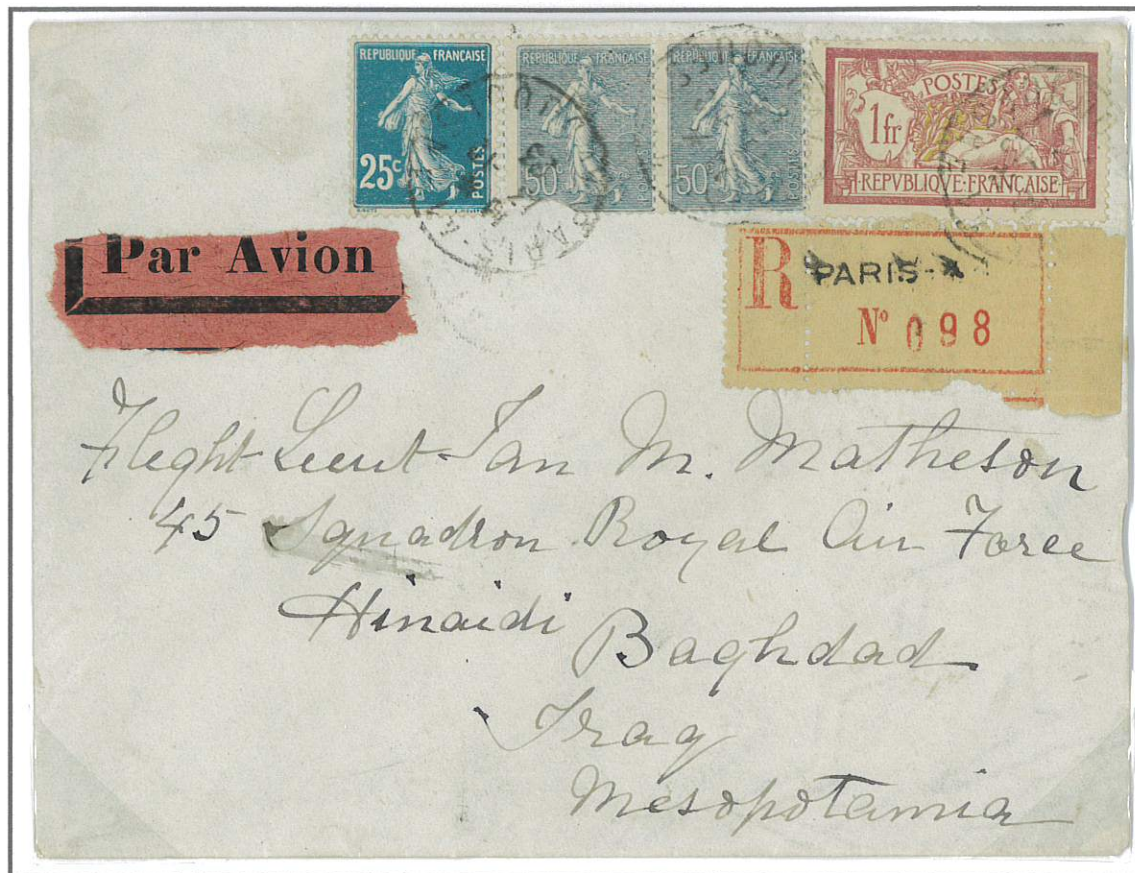 REPUBLIQUE FRANÇAISE
25c
POSTES
REPUBLIQUE FRANÇAISE
50c
POSTES
REPUBLIQUE FRANÇAISE
50c
POSTES
POSTES
1fr
REPVBLIQVE·FRANÇAISE
Par Avion
R PARIS-
No 098
Flight Lieut Ian M. Matheson
45 Squadron Royal Air Force
Hinaidi
Baghdad
Iraq
Mesopotamia